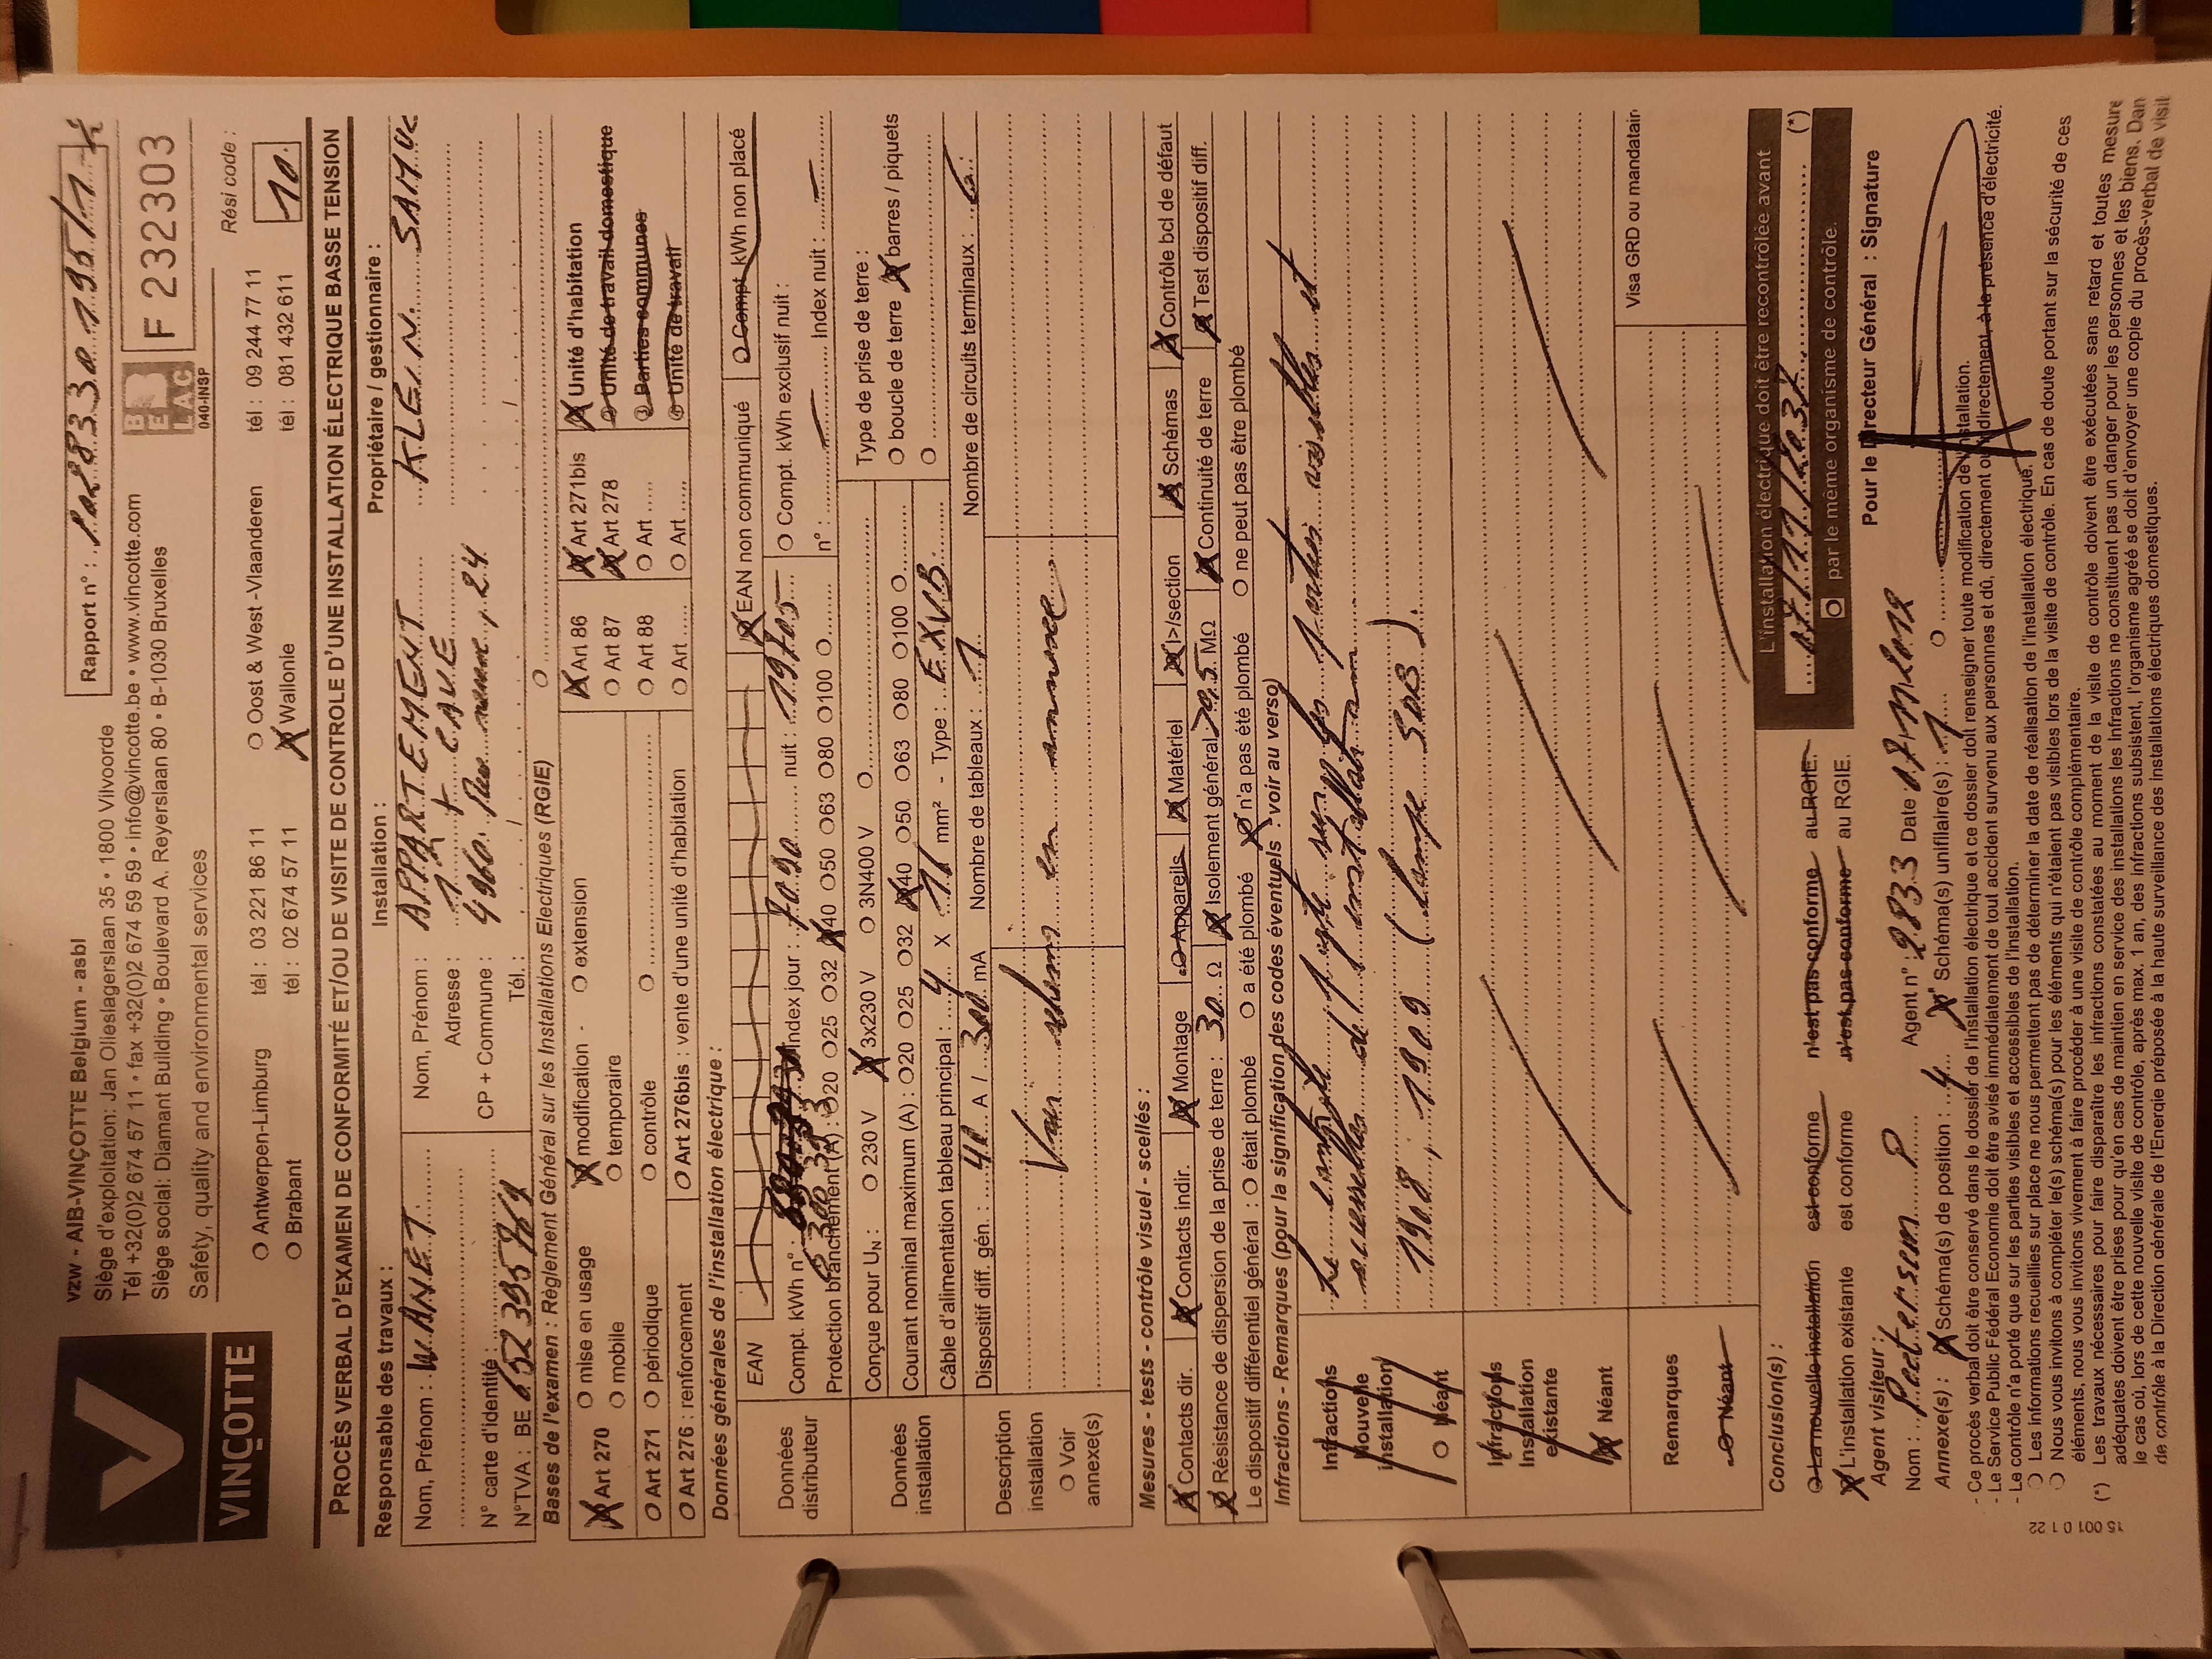 VINÇOTTE
vzw - AIB-VINÇOTTE Belgium - asbl
Siège d'exploitation: Jan Olieslagerslaan 35 • 1800 Vilvoorde
Tél +32(0)2 674 57 11 • fax +32(0)2 674 59 59 • info@vincotte.be • www.vincotte.com
Siège social: Diamant Building • Boulevard A. Reyerslaan 80 • B-1030 Bruxelles
Safety, quality and environmental services
Rapport n° :
BELAC
040-INSP
F 2323303
Rési code :
10
O Antwerpen-Limburg tél : 03 221 86 11 O Oost & West -Vlaanderen tél : 09 244 77 11
O Brabant tél : 02 674 57 11 Wallonie tél : 081 432 611
PROCÈS VERBAL D'EXAMEN DE CONFORMITÉ ET/OU DE VISITE DE CONTROLE D'UNE INSTALLATION ÉLECTRIQUE BASSE TENSION
Responsable des travaux : Installation : Propriétaire / gestionnaire :
Nom, Prénom : WANET Nom, Prénom : APPARTEMENT KLEIN SAMU
Adresse : 1 + CAVE
N° carte d'identité : CP + Commune : 4960 24
N°TVA : BE Tél. :
Bases de l'examen : Règlement Général sur les Installations Electriques (RGIE)
Art 270 O mise en usage modification O extension Art 86 Art 271bis Unité d'habitation
O mobile O temporaire O Art 87 Art 278 Unité de travail domestique
O Art 271 O périodique O contrôle O Art 88 O Art Parties communes
O Art 276 : renforcement O Art 276bis : vente d'une unité d'habitation O Art O Art Unité de travail
Données générales de l'installation électrique :
Données distributeur
EAN EAN non communiqué Compt. kWh non placé
Compt. kWh n° : Index jour : 7090 nuit : 19705 O Compt. kWh exclusif nuit :
Protection branchement (A) : O20 O25 O32 40 O50 O63 O80 O100 O n° : Index nuit :
Données installation
Conçue pour UN : O 230 V 3x230 V O 3N400 V O Type de prise de terre :
Courant nominal maximum (A) : O20 O25 O32 40 O50 O63 O80 O100 O O boucle de terre barres / piquets
Câble d'alimentation tableau principal : 4 X mm² - Type : EXVB O
Dispositif diff. gén. : 40 A / 300 mA Nombre de tableaux : 1 Nombre de circuits terminaux : 6
Description installation
O Voir annexe(s)
Voir schéma en annexe
Mesures - tests - contrôle visuel - scellés :
Contacts dir. Contacts indir. Montage Appareils Matériel I>/section Schémas Contrôle bcl de défaut
Résistance de dispersion de la prise de terre : 30 Ω Isolement général MΩ Continuité de terre Test dispositif diff.
Le dispositif différentiel général : O était plombé O a été plombé n'a pas été plombé O ne peut pas être plombé
Infractions - Remarques (pour la signification des codes éventuels : voir au verso)
Infractions Nouvelle installation
O Néant
Le contrôle porte sur les parties visibles et
accessibles de l'installation
1908, 1909 (
Infractions Installation existante
Néant
Remarques
O Néant
Visa GRD ou mandatair
Conclusion(s) :
O La nouvelle installation est conforme n'est pas conforme au RGIE.
L'installation existante est conforme n'est pas conforme au RGIE.
L'installation électrique doit être recontrôlée avant
07/11/2037 (*)
O par le même organisme de contrôle.
Agent visiteur :
Nom : Peetersem P Agent n° : 2833 Date Pour le Directeur Général : Signature
Annexe(s) : Schéma(s) de position : 4 Schéma(s) unifilaire(s) : 1 O
- Ce procès verbal doit être conservé dans le dossier de l'installation électrique et ce dossier doit renseigner toute modification de l'installation.
- Le Service Public Fédéral Economie doit être avisé immédiatement de tout accident survenu aux personnes et dû, directement ou indirectement, à la présence d'électricité.
- Le contrôle n'a porté que sur les parties visibles et accessibles de l'installation.
O Les informations recueillies sur place ne nous permettent pas de déterminer la date de réalisation de l'installation électrique.
O Nous vous invitons à compléter le(s) schéma(s) pour les éléments qui n'étaient pas visibles lors de la visite de contrôle. En cas de doute portant sur la sécurité de ces
éléments, nous vous invitons vivement à faire procéder à une visite de contrôle complémentaire.
(*) Les travaux nécessaires pour faire disparaître les infractions constatées au moment de la visite de contrôle doivent être exécutées sans retard et toutes mesure
adéquates doivent être prises pour qu'en cas de maintien en service des installations les infractions ne constituent pas un danger pour les personnes et les biens. Dan
le cas où, lors de cette nouvelle visite de contrôle, après max. 1 an, des infractions subsistent, l'organisme agréé se doit d'envoyer une copie du procès-verbal de visit
de contrôle à la Direction générale de l'Energie préposée à la haute surveillance des installations électriques domestiques.
15 001 D 1 22